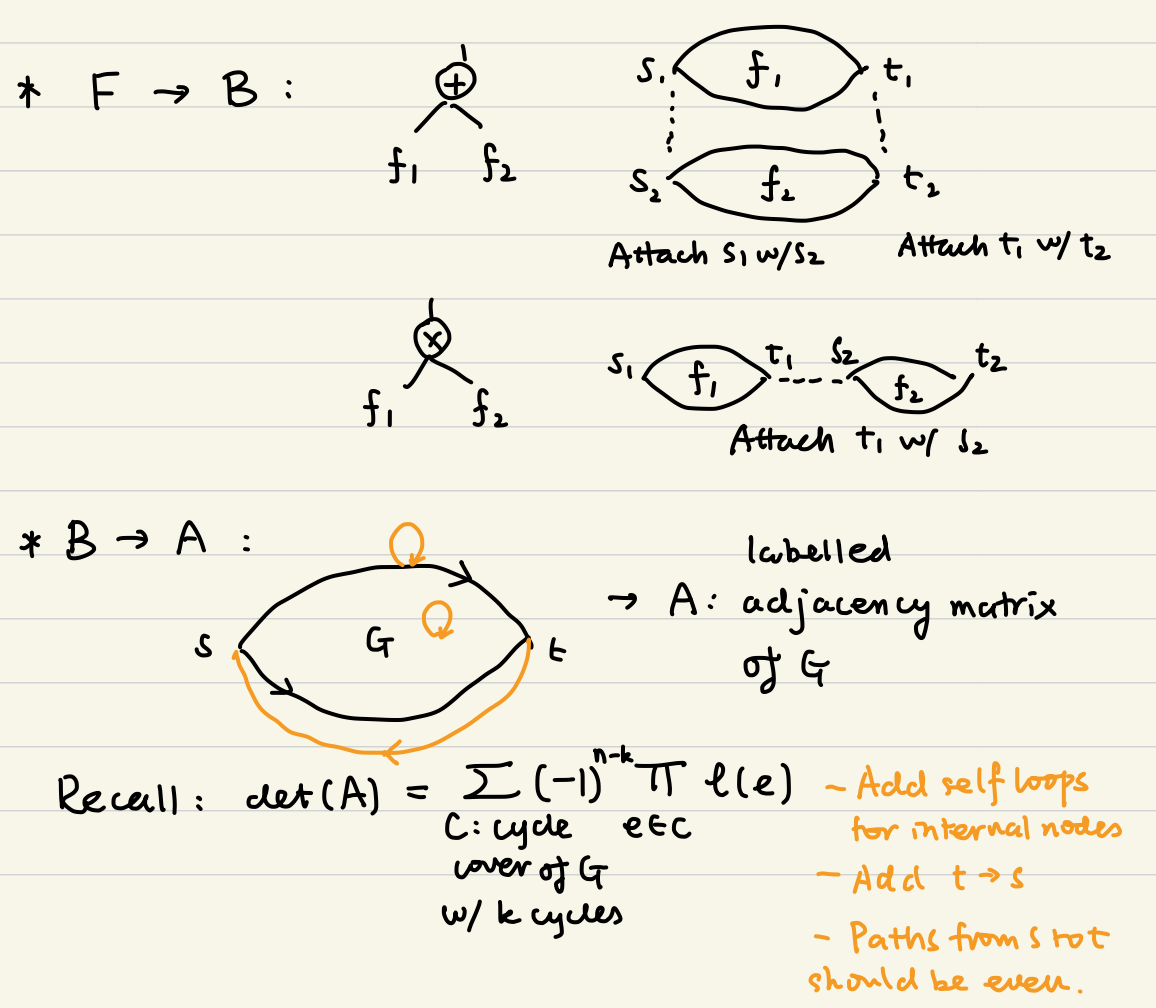 * F → B :
+
f₁ f₂
s₁ f₁ t₁
s₂ f₂ t₂
Attach s₁ w/s₂ Attach t₁ w/ t₂
×
f₁ f₂
s₁ f₁ t₁ s₂ f₂ t₂
Attach t₁ w/ s₂
* B → A :
s G t
→ A: labelled
adjacency matrix
of G
Recall: det(A) = Σ (-1)ⁿ⁻ᵏ Π l(e)
C: cycle e∈C
cover of G
w/ k cycles
- Add self loops
for internal nodes
- Add t → s
- Paths from s to t
should be even.